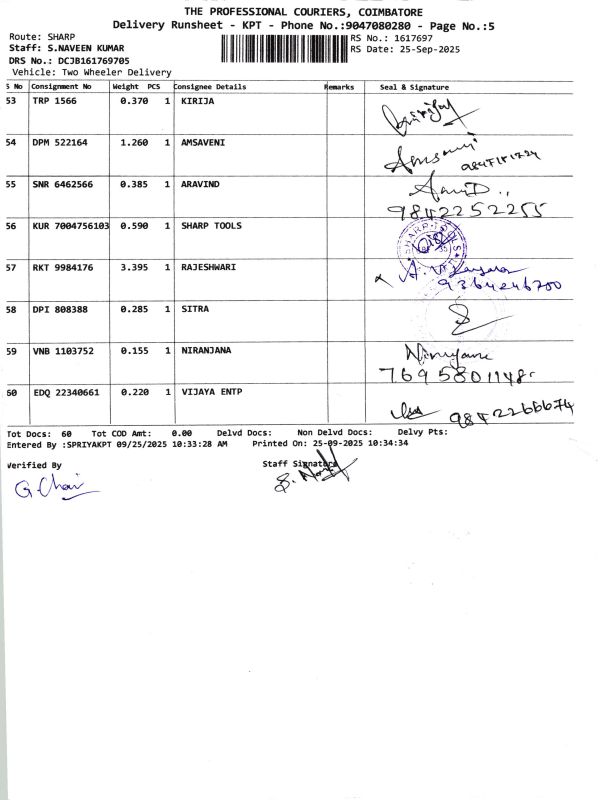 THE PROFESSIONAL COURIERS, COIMBATORE
Delivery Runsheet - KPT - Phone No.:9047080280 - Page No.:5
Route: SHARP RS No.: 1617697
Staff: S.NAVEEN KUMAR RS Date: 25-Sep-2025
DRS No.: DCJB161769705
Vehicle: Two Wheeler Delivery
S No Consignment No Weight PCS Consignee Details Remarks Seal & Signature
53 TRP 1566 0.370 1 KIRIJA
54 DPM 522164 1.260 1 AMSAVENI
55 SNR 6462566 0.385 1 ARAVIND
9842252255
56 KUR 7004756103 0.590 1 SHARP TOOLS
57 RKT 9984176 3.395 1 RAJESHWARI
9364246700
58 DPI 808388 0.285 1 SITRA
59 VNB 1103752 0.155 1 NIRANJANA
7695801148
60 EDQ 22340661 0.220 1 VIJAYA ENTP
Tot Docs: 60 Tot COD Amt: 0.00 Delvd Docs: Non Delvd Docs: Delvy Pts:
Entered By :SPRIYAKPT 09/25/2025 10:33:28 AM Printed On: 25-09-2025 10:34:34
Verified By Staff Signature